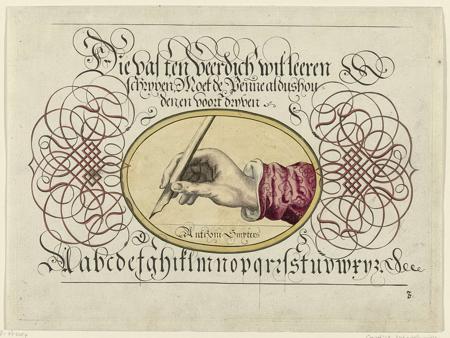 Die vast en veerdich wil leeren
schryven, Moet de Penne aldus hou
den, en voort dryven
Anthoni Smyters
Aabcdefghiklmnopqrrſstuvwxyz.